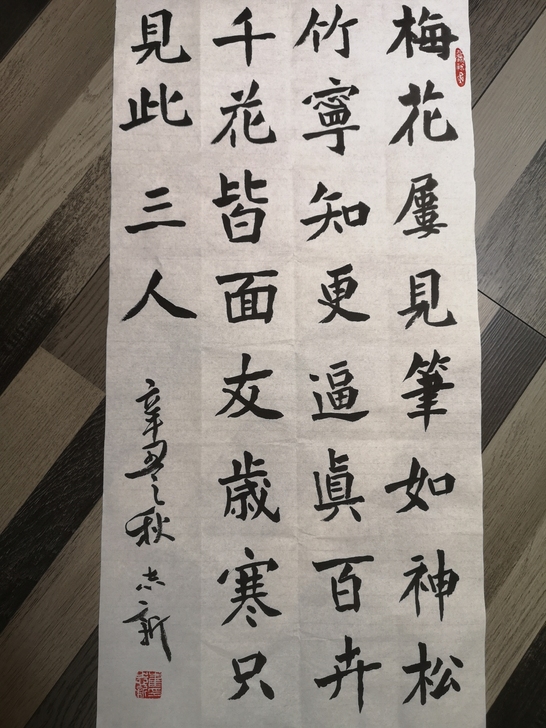 梅花屢見筆如神松
竹寧知更逼真百卉
千花皆面友歲寒只
見此三人
辛丑之秋 志新